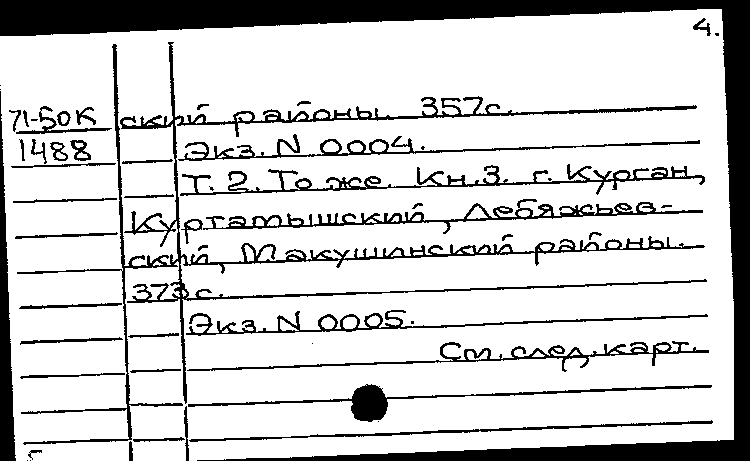 4.
71-50К ский районы. 357с.
1488 Экз. N 0004.
Т. 2. То же. Кн. 3. г. Курган,
Куртамышский, Лебяжьев-
ский, Макушинский районы.
373с.
Экз. N 0005.
См. след. карт.